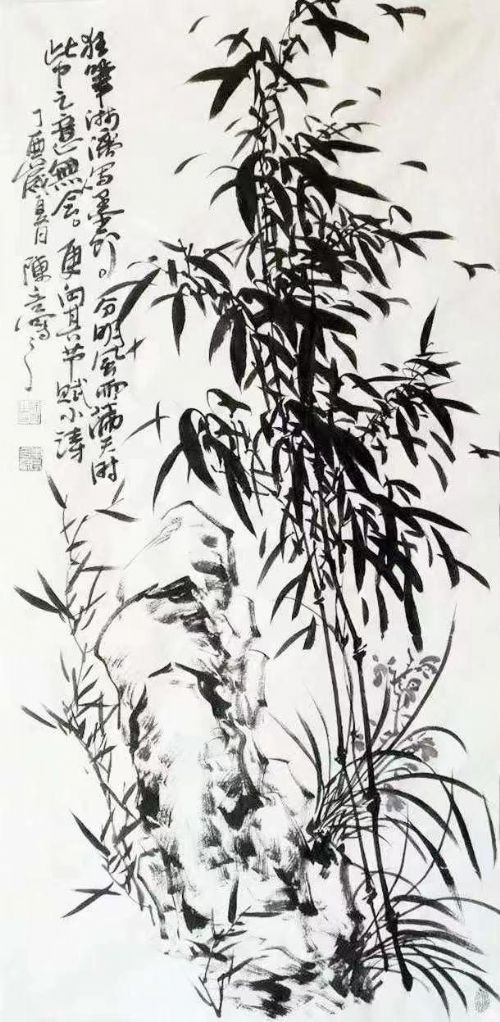 狂筆淋漓寫墨。分明風雨滿天时
此中之意無会。更向其节賦小詩
丁酉歲夏日 陳